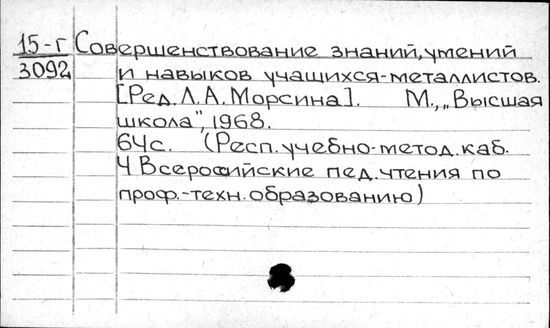 15-г Совершенствование знаний, умений
3092 и навыков учащихся-металлистов.
[Ред. Л.А. Морсина]. М., „Высшая
школа", 1968.
64с. (Респ. учебно-метод. каб.
4 Всеросийские пед. чтения по
проф.-техн. образованию)